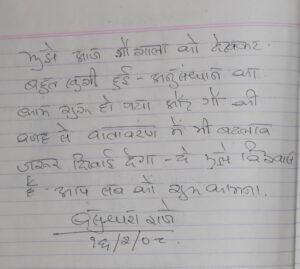 मुझे आज गौशाला को देखकर
बहुत खुशी हुई - अनुसंधान का
काम शुरू हो गया और गौ की
वजह से वातावरण में भी बदलाव
जरूर दिखाई देगा - ये मुझे विश्वास
है - आप सब को शुभकामना.
वसुन्धरा राजे
१६/२/०८.